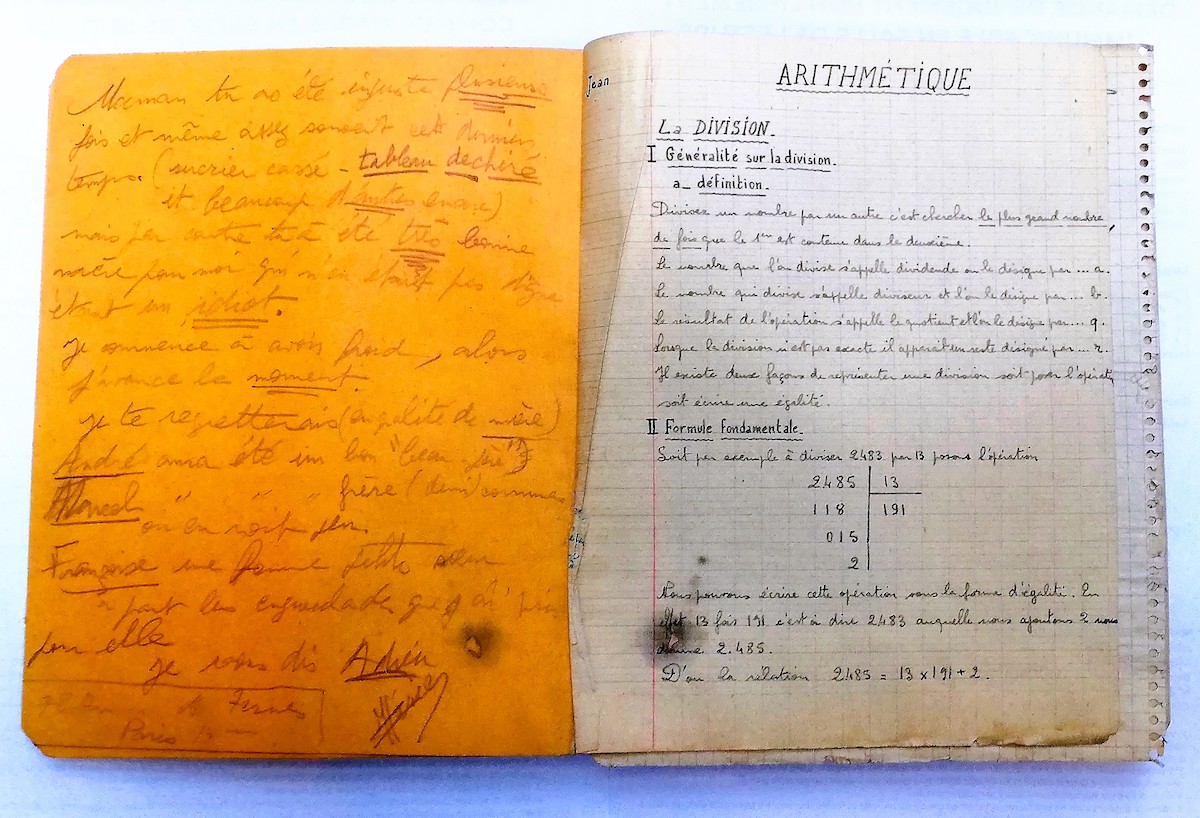 Maman tu as été injuste plusieurs
fois et même assez souvent ces derniers
temps. (sucrier cassé - tableau dechiré
et beaucoup d'autres encore)
mais par contre tu à été très bonne
mère pour moi qui n'en etait pas digne
étant un idiot.
je commence à avoir froid, alors
j'avance le moment.
je te regretterais (en qualité de mère)
André aura été un bon "beau-père"
Marcel " " " frère (demi) comme
on en voit peu.
Françoise une bonne petite sœur
à part les engueulades que j'ai pris
pour elle
je vous dis Adieu
Paris
Jean
ARITHMÉTIQUE
La DIVISION.
I Généralité sur la division.
a_ définition.
Divisez un nombre par un autre c'est chercher le plus grand nombre
de fois que le 1er est contenu dans le deuxième.
Le nombre que l'on divise s'appelle dividende on le désigne par ... a.
Le nombre qui divise s'appelle diviseur et l'on le désigne par ... b.
Le résultat de l'opération s'appelle le quotient et l'on le désigne par ... q.
Lorsque la division n'est pas exacte il apparaît un reste désigné par ... r.
Il existe deux façons de représenter une division soit poser l'opérat
soit écrire une égalité.
II Formule fondamentale.
Soit par exemple à diviser 2483 par 13 posons l'opération
2485 13
118 191
015
2
Nous pouvons écrire cette opération sous la forme d'égalité. En
effet 13 fois 191 c'est à dire 2483 auquelle nous ajoutons 2 nous
donne 2.485.
D'ou la relation 2485 = 13 x 191 + 2.